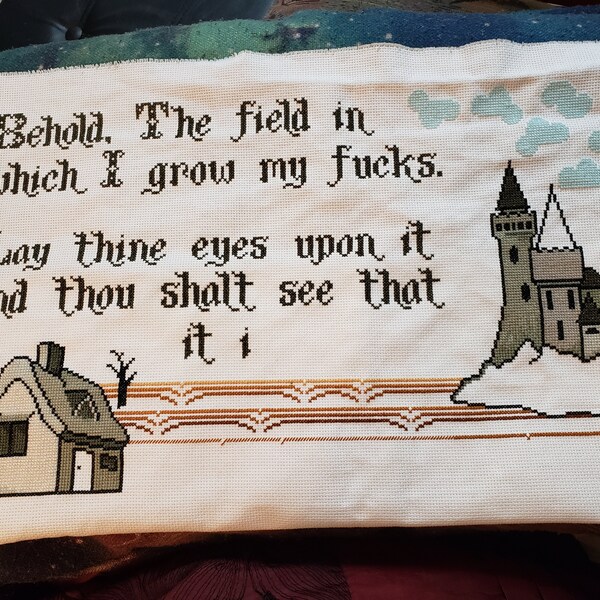 Behold. The field in
which I grow my fucks.
Lay thine eyes upon it
and thou shalt see that
it i